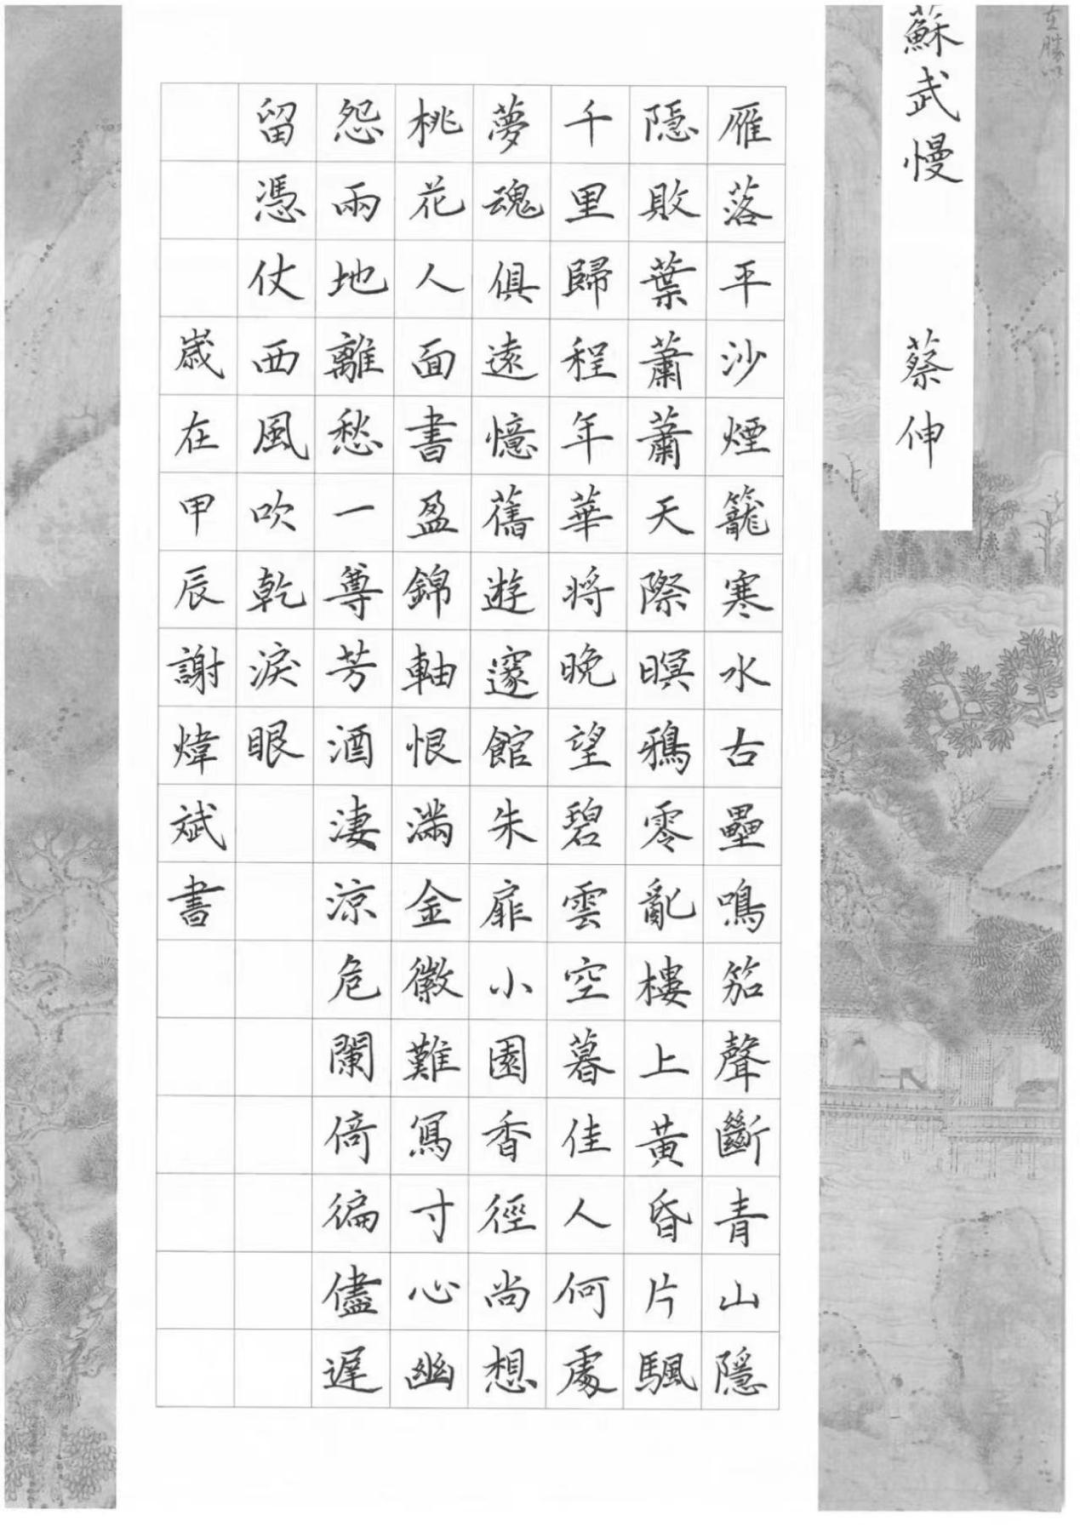 蘇武慢 蔡伸
雁落平沙煙籠寒水古壘鳴笳聲斷青山隱
隱敗葉蕭蕭天際暝鴉零亂樓上黃昏片颿
千里歸程年華將晚望碧雲空暮佳人何處
夢魂俱遠憶舊遊邃館朱扉小園香徑尚想
桃花人面書盈錦軸恨滿金徽難寫寸心幽
怨兩地離愁一尊芳酒淒涼危闌倚徧儘遲
留憑仗西風吹乾淚眼
歲在甲辰謝煒斌書